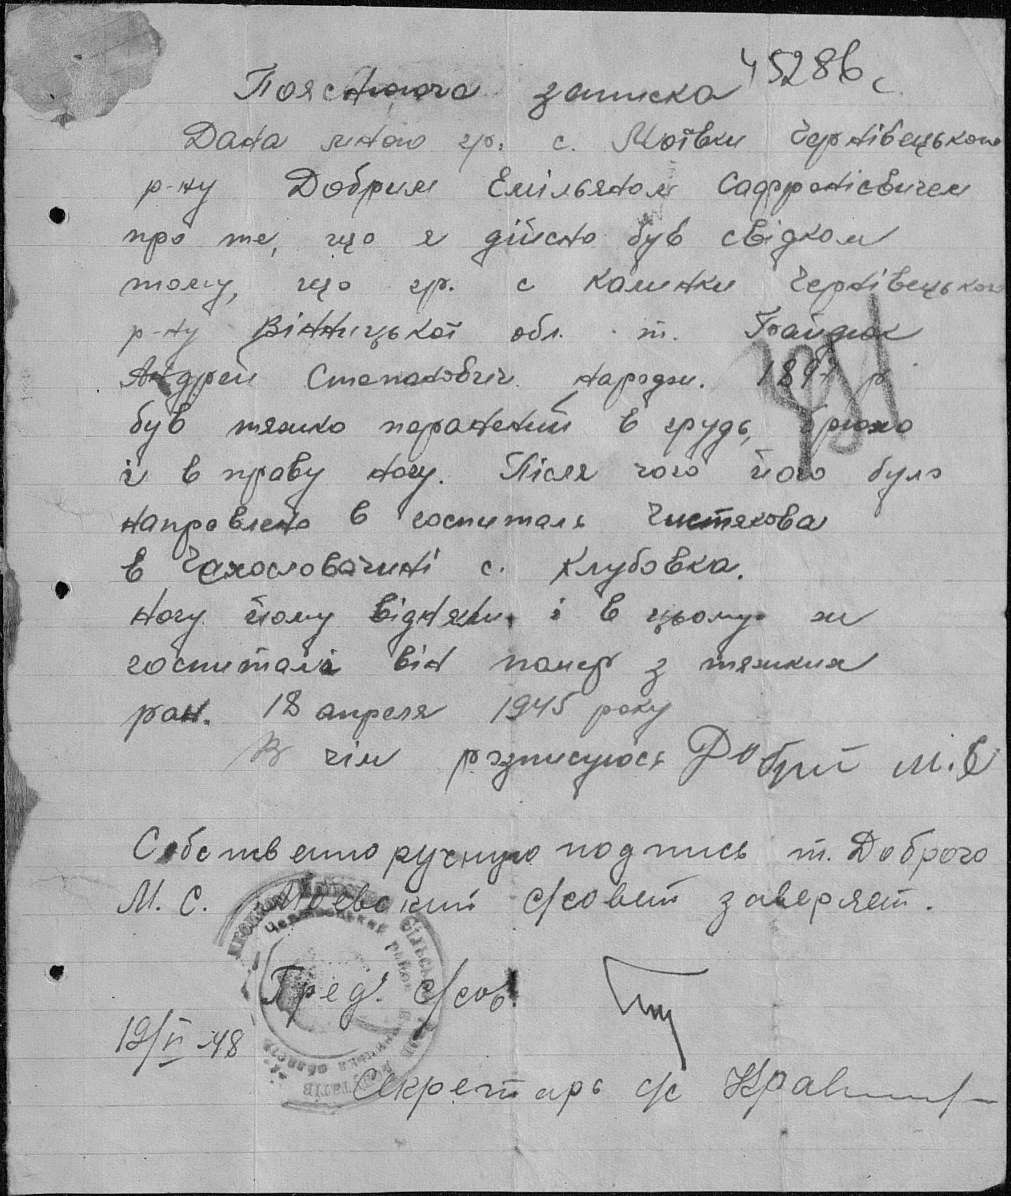 45286с
Пояснююча записка
Дана мною гр. с. Моївки Чернівецького
р-ну Добрим Емільяном Сафронієвичем
про те, що я дійсно був свідком
тому, що гр. с Калинки Чернівецького
р-ну Вінницької обл. т. Гайдюк
Андрей Степанович народж. 1897 р
був тяжко поранений в грудь, брюхо
і в праву ногу. Після чого його було
направлено в госпиталь Чистякова
в Чехословаччині с. Клубовка.
Ногу йому відняли і в цьому ж
госпиталі він помер з тяжких
ран. 18 апреля 1945 року
В чім розписуюсь Добрий М.С
Собственноручную подпись т. Доброго
М. С. Моевский с/совет заверяет.
Пред. с/сов.
19/VI 48
Секретарь с/с